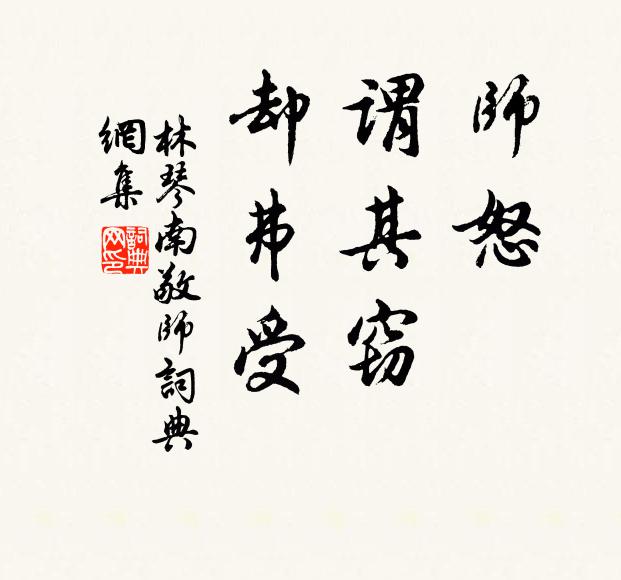 師怒
謂其窃
却弗受
林琴南敬師詞典
網集
詞典
网印